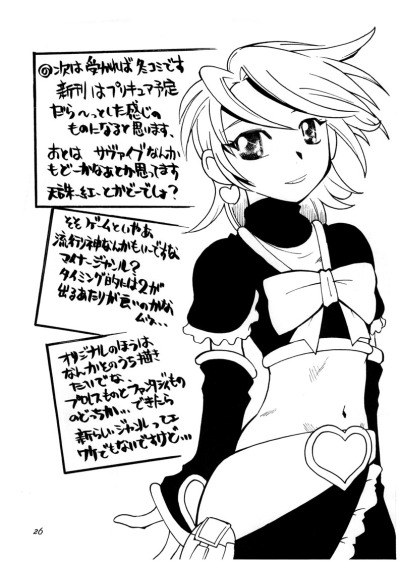 ◎次は受かれば冬コミです
新刊はプリキュア予定
だら〜っとした感じの
ものになると思います、
あとは サヴァイヴなんか
もどーかなぁとか思ってます
とかどーでしょ?
そそ ゲームといやぁ
流行り神なんかもいーですな
マイナージャンル?
タイミング的には2が
出るあたりが良いのかな
ムゥ…
オリジナルのほうは、
なんかそのうち描き
たいでな、
プロレスものとファンタジィもの
のどっちか…できたら
新らしいジャンルってェ
ワケでもないですけど…
26